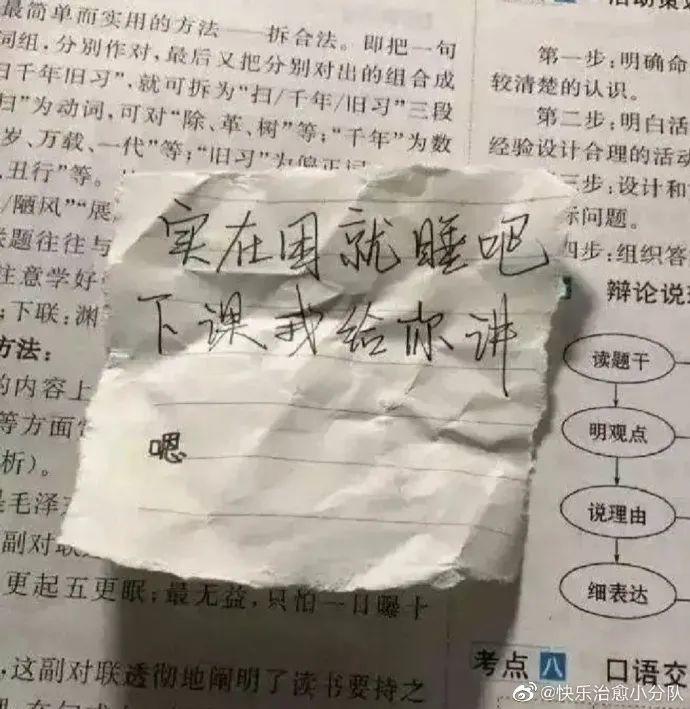 最简单而实用的方法——拆合法。即把一句
词组,分别作对,最后又把分别对出的组合成
扫千年旧习”,就可拆为“扫/千年/旧习”三段
扫”为动词,可对“除、革、树”等;“千年”为数
岁、万载、一代”等;“旧习”为偏正词
、丑行”等。
/陋风”“展
联题往往与
注意学好
;下联:渊
方法:
的内容上
等方面
析)。
是毛泽
副对联
更起五更眠;最无益,只怕一日曝十
,这副对联透彻地阐明了读书要持之
实在困就睡吧
下课我给你讲
嗯
活动策划
第一步:明确命
较清楚的认识。
第二步:明白活
经验设计合理的活动
三步:设计和
际问题。
四步:组织答
辩论说
读题干
明观点
说理由
细表达
考点八 口语交
@快乐治愈小分队